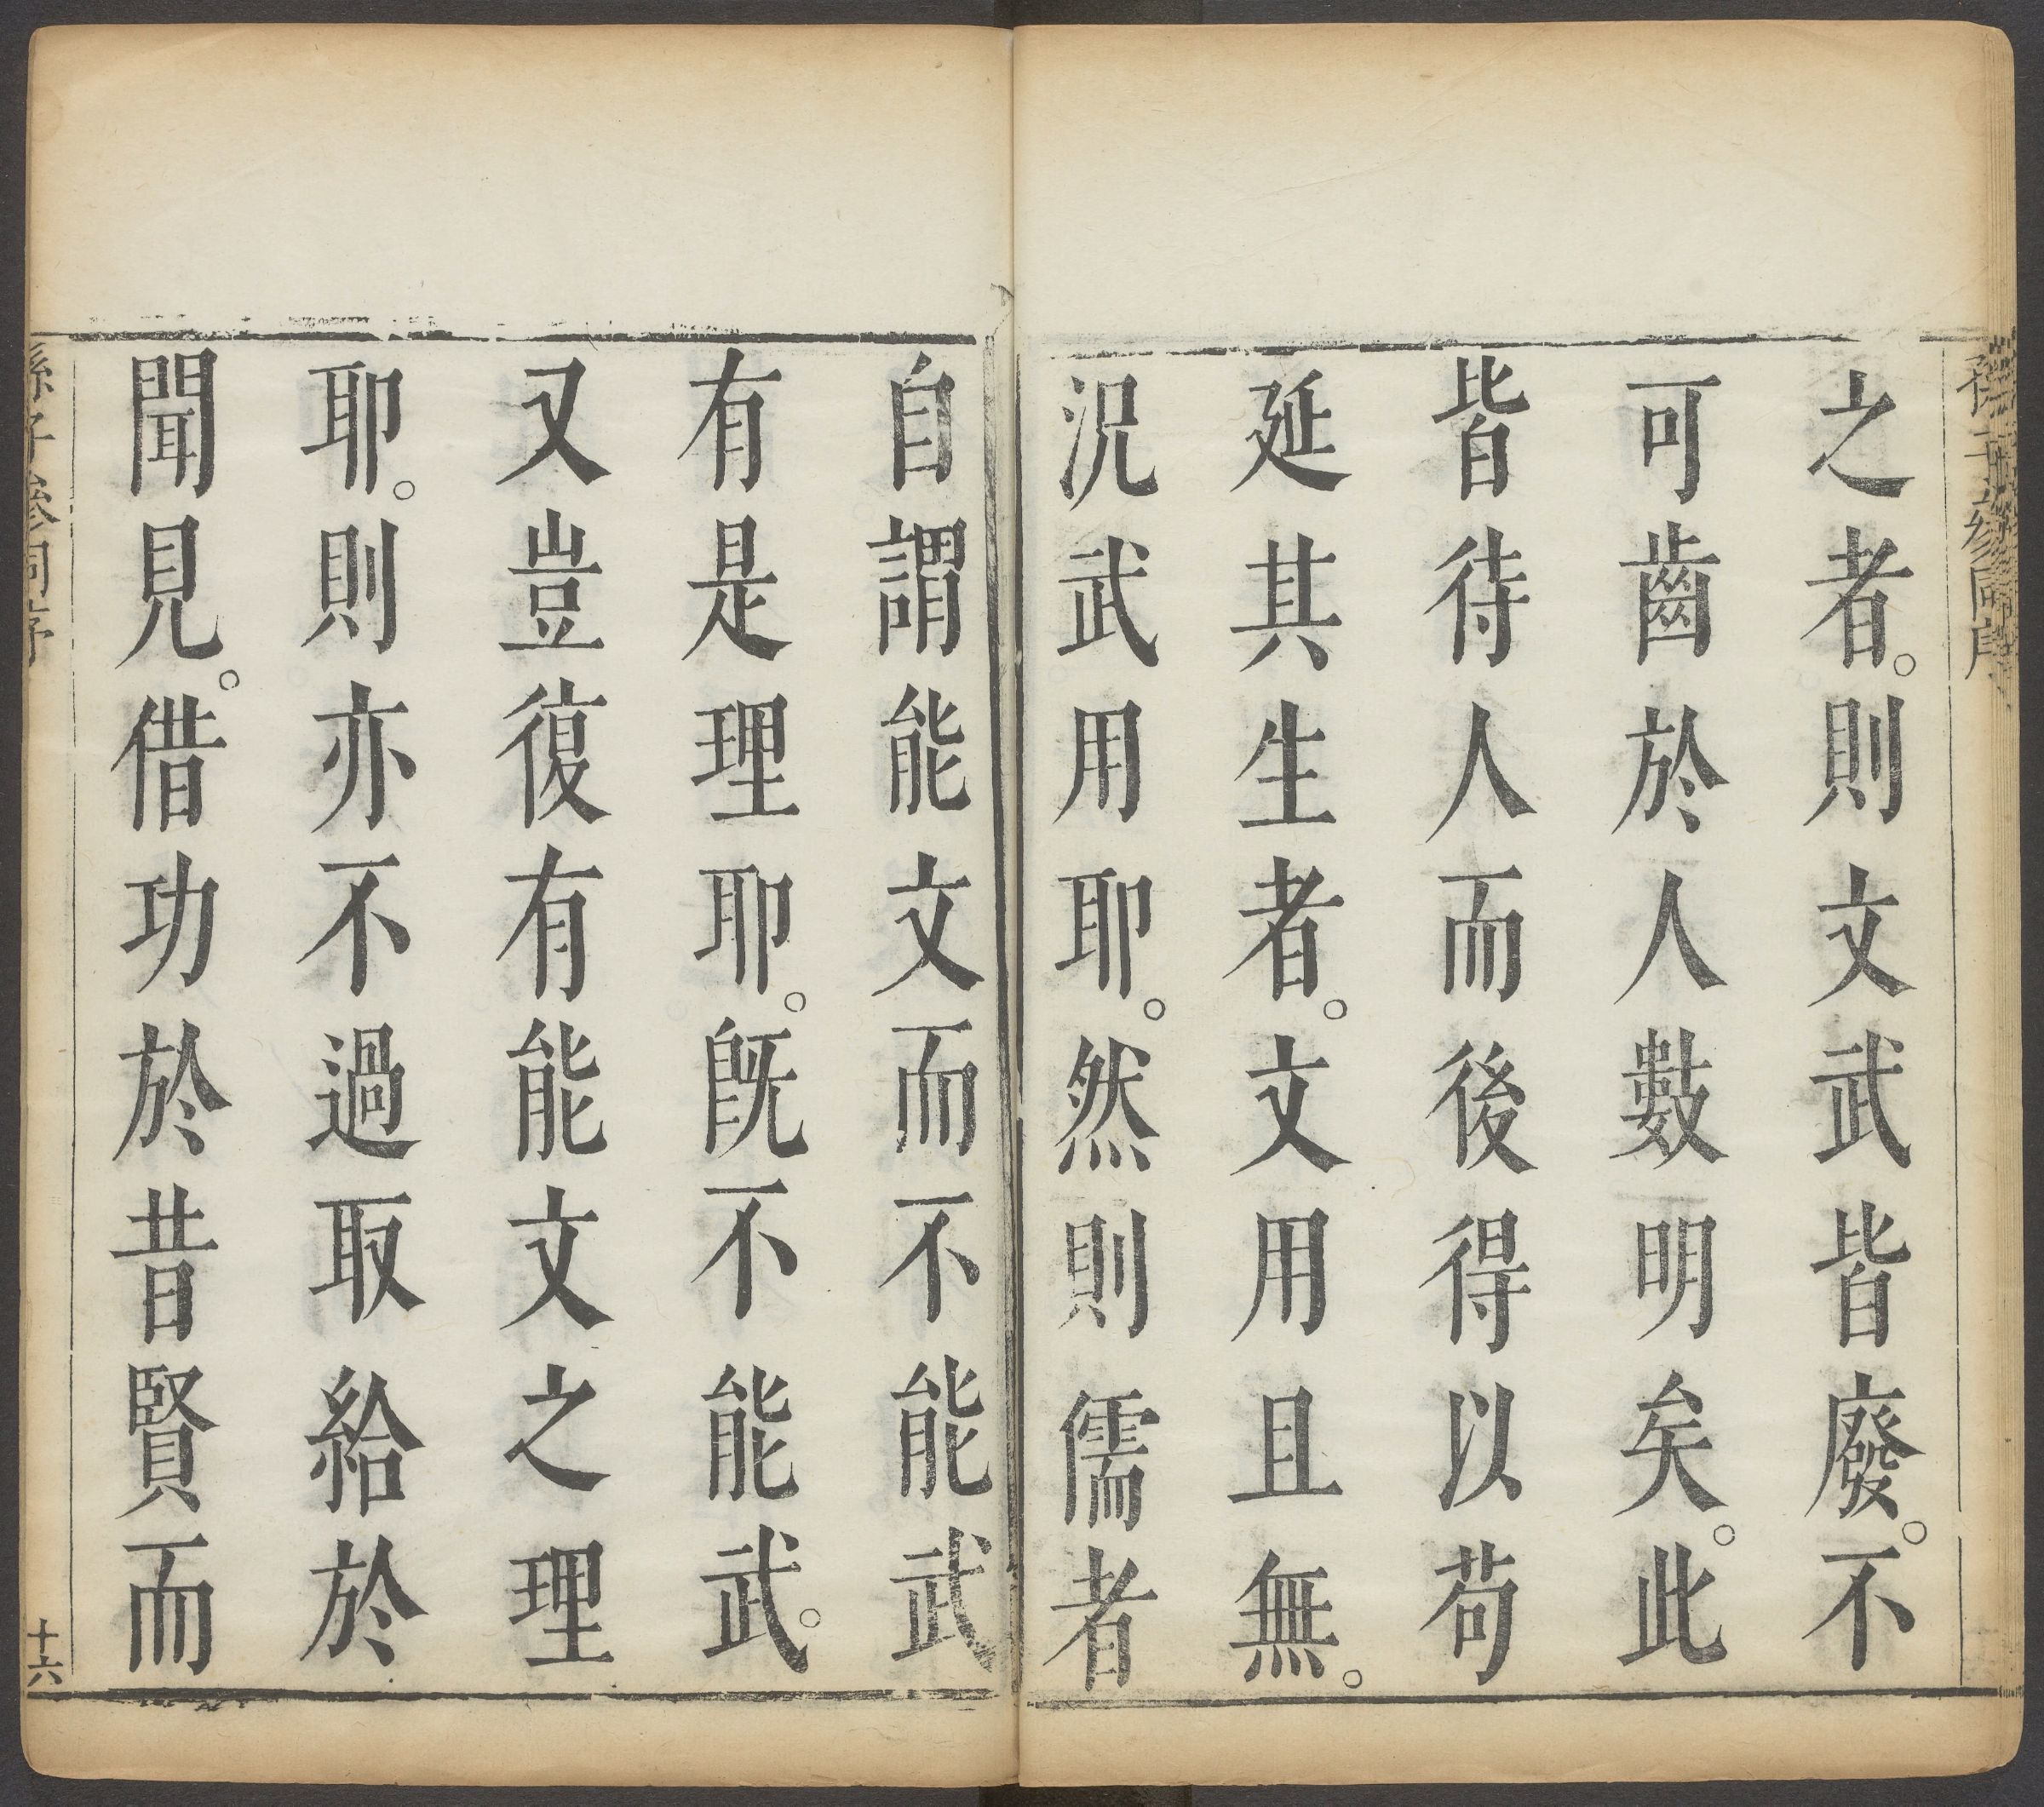 孫子參同序
之者。則文武皆廢。不
可齒於人數明矣。此
皆待人而後得以苟
延其生者。文用且無。
況武用耶。然則儒者
自謂能文而不能武
有是理耶。既不能武。
又豈復有能文之理
耶。則亦不過取給於
聞見。借功於昔賢而
孫子參同序
十六